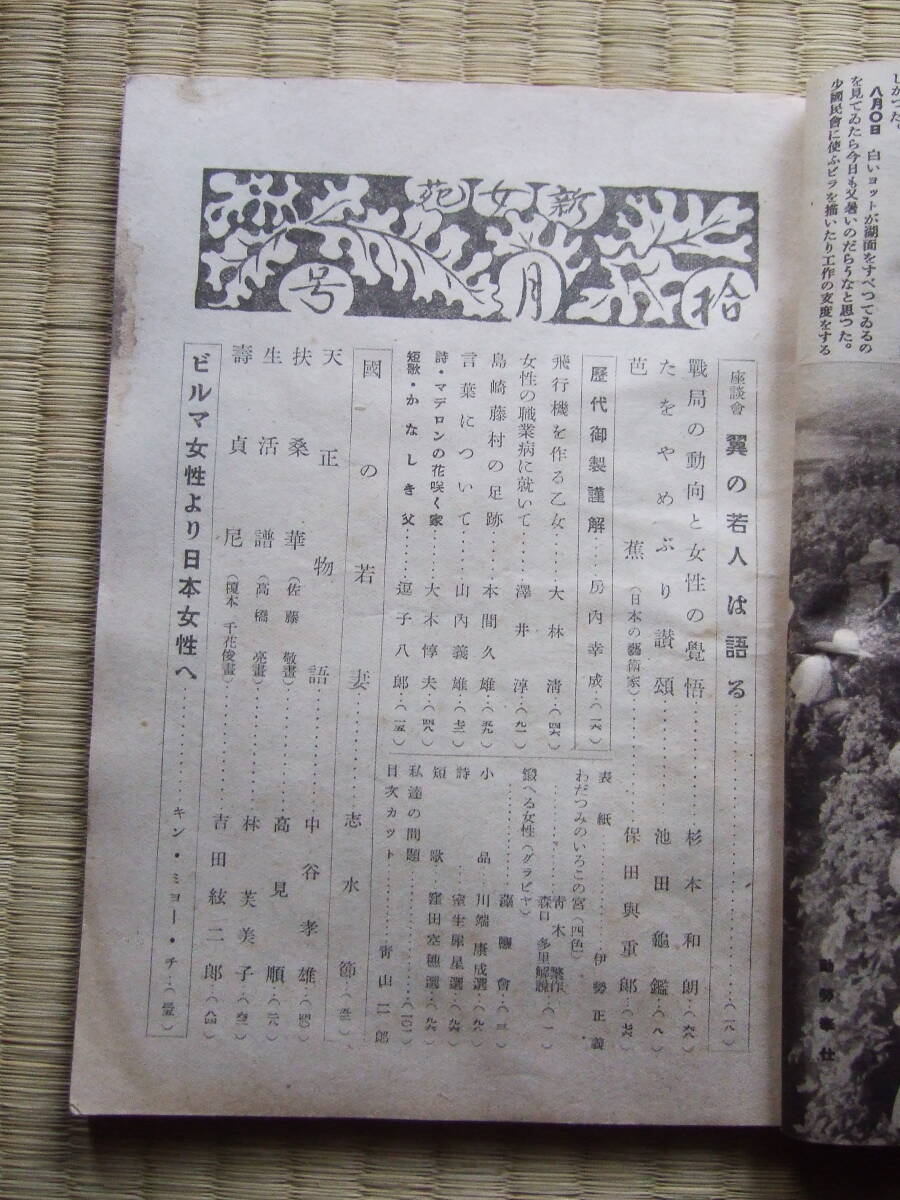 しかつた。
八月〇日 白いヨットが湖面をすべつてゐるの
を見てゐたら今日も又暑いのだらうなと思つた。
少國民會に使ふビラを描いたり工作の支度をする
勤勞奉仕
新女苑
拾月号
座談會 翼の若人は語る……(一八)
戰局の動向と女性の覺悟 杉本和朗…(六六)
たをやめぶり讃頌……池田龜鑑…(八)
芭蕉(日本の藝術家)……保田與重郎…(七六)
歷代御製謹解……房内幸成…(二六)
飛行機を作る乙女……大林清…(四六)
女性の職業病に就いて……澤井淳…(九一)
島崎藤村の足跡……本間久雄…(五九)
言葉について……山内義雄…(七二)
詩・マデロンの花咲く家……大木惇夫…(四八)
短歌・かなしき父……逗子八郎…(一五)
表紙……伊勢正義
わだつみのいろこの宮(四色)
……青木繁作
森口多里解說…(一)
鍛へる女性(グラビヤ)
……藻鹽會…(三)
小品……川端康成選…(九八)
詩……室生犀星選…(九六)
短歌……窪田空穗選…(九六)
私達の問題……(一〇一)
目次カット……青山二郎
國の若妻……志水節…
天正物語……中谷孝雄…
扶桑華(佐藤敬畫)……高見順…
生活譜(高橋亮畫)……林芙美子…
壽貞尼(榎本千花俊畫)……吉田絃二郎…(八四)
ビルマ女性より日本女性へ……キン・ミョー・チ…